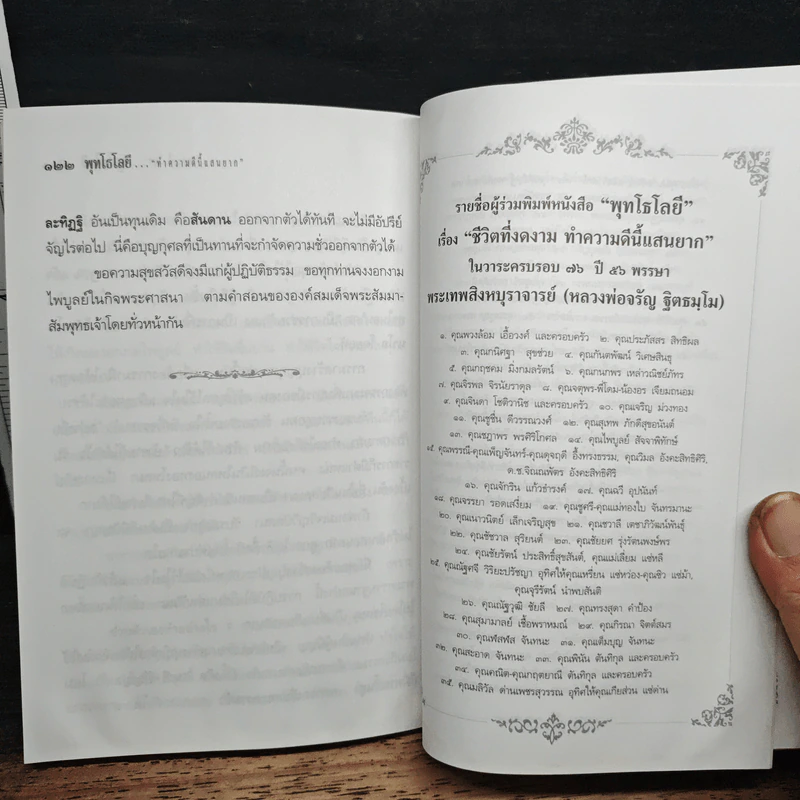 ๑๒๒ พุทโธโลยี ... "ทำความดีนี้แสนยาก"
ละทิฏฐิ อันเป็นทุนเดิม คือสันดาน ออกจากตัวได้ทันที จะไม่มีอัปรีย์
จัญไรต่อไป นี่คือบุญกุศลที่เป็นทานที่จะกำจัดความชั่วออกจากตัวได้
ขอความสุขสวัสดีจงมีแก่ผู้ปฏิบัติธรรม ขอทุกท่านจงงอกงาม
ไพบูลย์ในกิจพระศาสนา ตามคำสอนขององค์สมเด็จพระสัมมา-
สัมพุทธเจ้าโดยทั่วหน้ากัน
รายชื่อผู้ร่วมพิมพ์หนังสือ "พุทโธโลยี"
เรื่อง "ชีวิตที่งดงาม ทำความดีนี้แสนยาก"
ในวาระครบรอบ ๗๖ ปี ๕๖ พรรษา
พระเทพสิงหบุราจารย์ (หลวงพ่อจรัญ ฐิตธมฺโม)
๑. คุณพวงล้อม เอื้อวงศ์ และครอบครัว ๒. คุณประภัสสร สิทธิผล
๓. คุณกนิศฐา สุขช่วย ๔. คุณกันตพัฒน์ วิเศษสินธุ
๕. คุณกฤชคม มิ่งกมลรัตน์ ๖. คุณกนกพร เหล่าวณิชย์ภัทร
๗. คุณจิรพล จิรนัยราดุล ๘. คุณจตุพร-พี่โดม-น้องอร เจียมถนอม
๙. คุณจินดา โชติวานิช และครอบครัว ๑๐. คุณเจริญ ม่วงทอง
๑๑. คุณชูชื่น ดีวรรณวงศ์ ๑๒. คุณสุเทพ ภักดีสุขอนันต์
๑๓. คุณชฎาพร พรศิริโกศล ๑๔. คุณไพบูลย์ สัจจาพิทักษ์
๑๕. คุณพรรณี-คุณเพ็ญจันทร์-คุณดุจฤดี อึ้งทรงธรรม, คุณวิมล อังคะสิทธิศิริ,
ด.ช.จิณณพัตร อังคะสิทธิศิริ
๑๖. คุณจักริน แก้วธำรงค์ ๑๗. คุณฉวี อุปนันท์
๑๘. คุณจรรยา รอตเสงี่ยม ๑๙. คุณชูศรี-คุณแม่ทองใบ จันทรมานะ
๒๐. คุณเนาวนิตย์ เล็กเจริญสุข ๒๑. คุณชวาลี เดชาภิวัฒน์พันธุ์
๒๒. คุณชัชวาล สุริยนต์ ๒๓. คุณชัยยศ รุ่งรัตนพงษ์พร
๒๔. คุณชัยรัตน์ ประสิทธิ์สุขสันต์, คุณแม่เลี่ยม แซ่หลี
๒๕. คุณณัฐตจี วิริยะปรัชญา อุทิศให้คุณเหรียน แซ่หว่อง-คุณชิว แซ่ม้า,
คุณจุรีรัตน์ นำพบสันติ
๒๖. คุณณัฐวุฒิ ชัยลี ๒๗. คุณทรงสุดา คำป้อง
๒๘. คุณสุมามาลย์ เชื้อพราหมณ์ ๒๙. คุณกิรณา จิตต์สมร
๓๐. คุณฬสฬส จันทนะ ๓๑. คุณเต็มบุญ จันทนะ
๓๒. คุณสะอาด จันทนะ ๓๓. คุณพินัน ตันทิกุล และครอบครัว
๓๔. คุณคณิต-คุณกฤตยาณี ตันทิกุล และครอบครัว
๓๕. คุณมลิวัล ด่านเพชรสุวรรณ อุทิศให้คุณเกียส่วน แซ่ด่าน